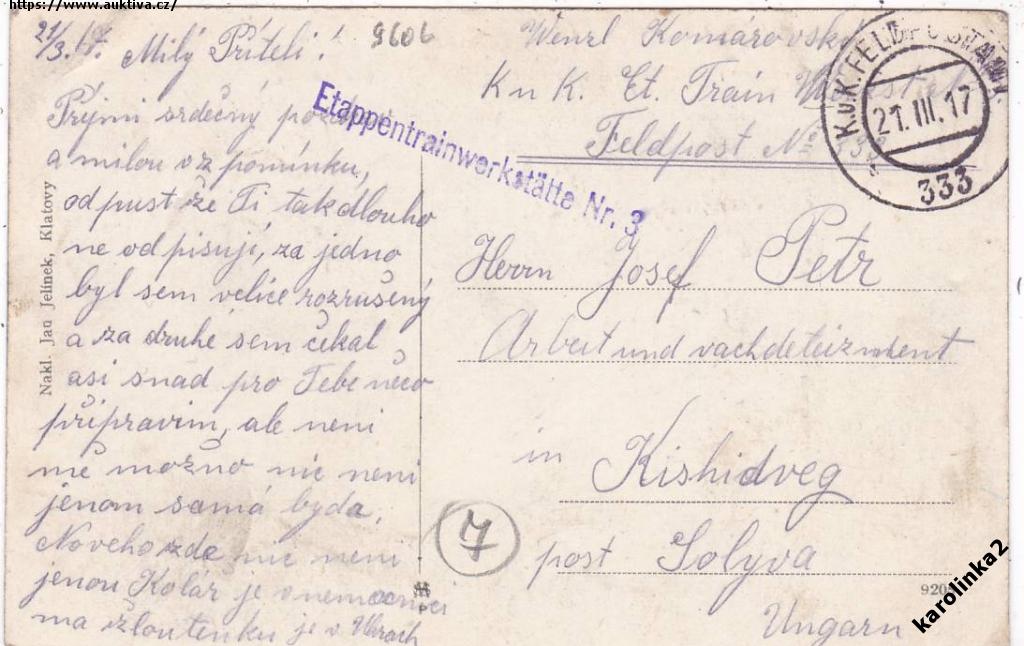 https://www.auktiva.cz/
21/3. 17.
Milý Příteli!
Přijmi srdečný pozdrav
a milou vzpomínku,
odpust že Ti tak dlouho
ne odpisuji, za jedno
byl sem velice rozrušený
a za druhé sem čekal
asi snad pro Tebe něco
připravim, ale neni
mě možno nic neni
jenom samá byda,
Noveho zde nic neni
jenou Kolár je v nemocnici
ma žloutenku je v Uhrach
Nakl. Jan Jelínek, Klatovy
9606
Wenzl Komárovsky
K u K. Et. Train
Feldpost No
Etappentrainwerkstätte Nr. 3
K.u.K. FELDPOSTAMT
21. III. 17
333
Herrn Josef Petr
Arbeit und
in Kishidveg
post Solyva
Ungarn
7
920
karolinka2